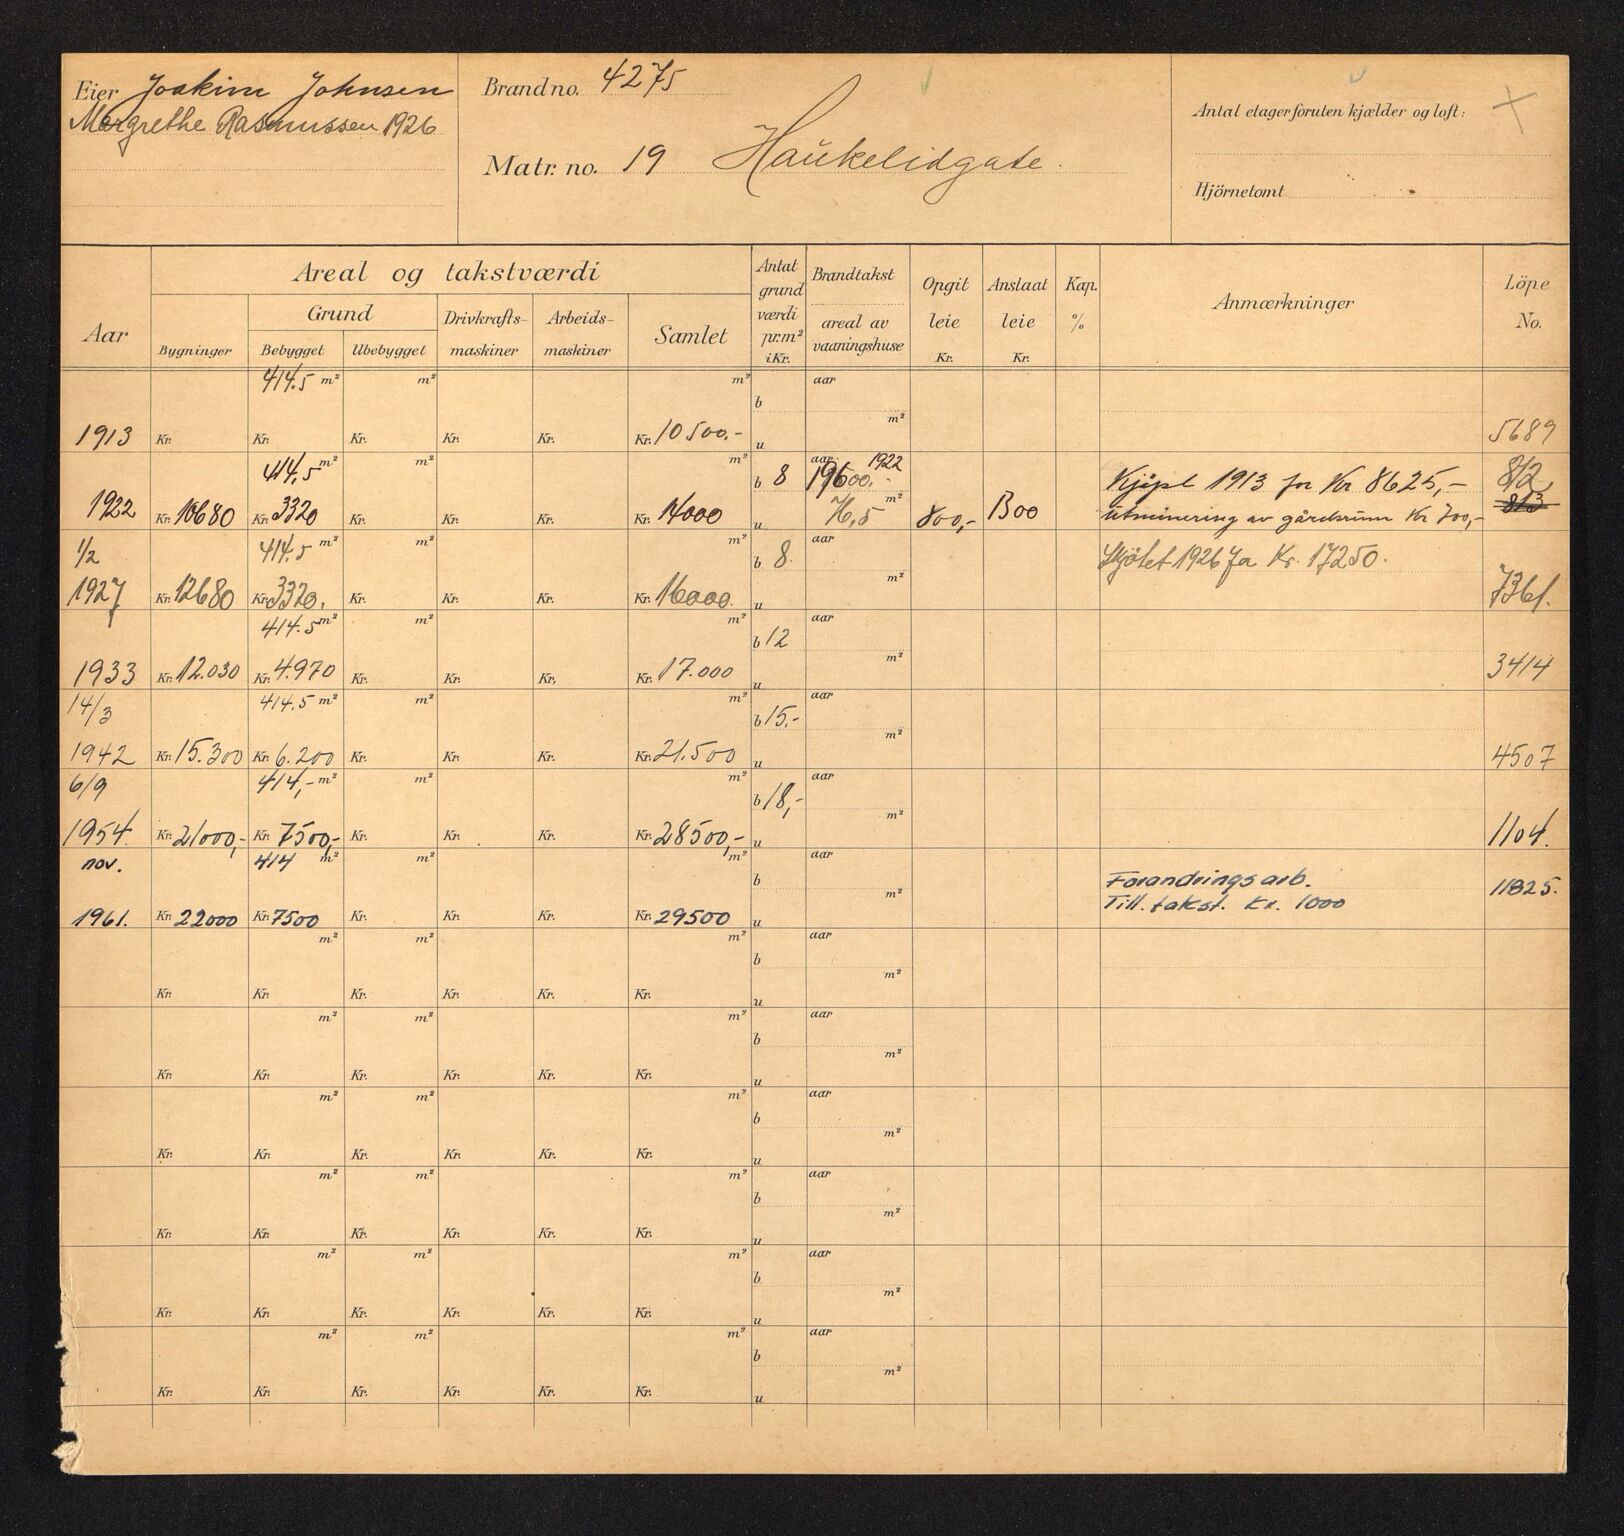 Eier Joakim Johnsen
Margrethe Rasmussen 1926
Brand no. 4275
Matr. no. 19 Haukelidgate.
Antal etager foruten kjælder og loft:
Hjörnetomt
Aar
Areal og takstværdi
Bygninger
Grund
Bebygget Ubebygget
Drivkrafts-maskiner
Arbeids-maskiner
Samlet
Antat grund værdi pr. m² i Kr.
Brandtakst
areal av vaaningshuse
Opgit leie Kr.
Anslaat leie Kr.
Kap. %
Anmærkninger
Löpe No.
414.5 m² m² m² b aar
m²
1913 Kr. Kr. Kr. Kr. Kr. Kr. 10500.- u 5689
414,5 m² m² m² b 8 aar 1922 19600.- Kjöpt 1913 for Kr 8625,- 812
1922 Kr. 10680 Kr. 3320 Kr. Kr. Kr. Kr. 14000 u m² 800,- 1300 utminering av gårdsrum Kr 700,- 813
1/2 414.5 m² m² m² b 8. aar Skjötet 1926 fa Kr. 17250.
m²
1927 Kr. 12680 Kr. 3320. Kr. Kr. Kr. Kr. 16000. u 7361.
414.5 m² m² m² b 12 aar
m²
1933 Kr. 12.030 Kr. 4.970 Kr. Kr. Kr. Kr. 17.000 u 3414
14/3 414.5 m² m² m² b 15.- aar
m²
1942 Kr. 15.300 Kr. 6.200 Kr. Kr. Kr. Kr. 21.500 u 4507
6/9 414,- m² m² m² b 18,- aar
m²
1954. Kr. 21000,- Kr. 7500,- Kr. Kr. Kr. Kr. 28500,- u 1104.
nov. 414 m² m² m² b aar Forandringsarb. 11825.
m² Till. takst. Kr. 1000
1961. Kr. 22000 Kr. 7500 Kr. Kr. Kr. Kr. 29500 u
m² m² m² b aar
m²
Kr. Kr. Kr. Kr. Kr. Kr. u
m² m² m² b aar
m²
Kr. Kr. Kr. Kr. Kr. Kr. u
m² m² m² b aar
m²
Kr. Kr. Kr. Kr. Kr. Kr. u
m² m² m² b aar
m²
Kr. Kr. Kr. Kr. Kr. Kr. u
m² m² m² b aar
m²
Kr. Kr. Kr. Kr. Kr. Kr. u
m² m² m² b aar
m²
Kr. Kr. Kr. Kr. Kr. Kr. u